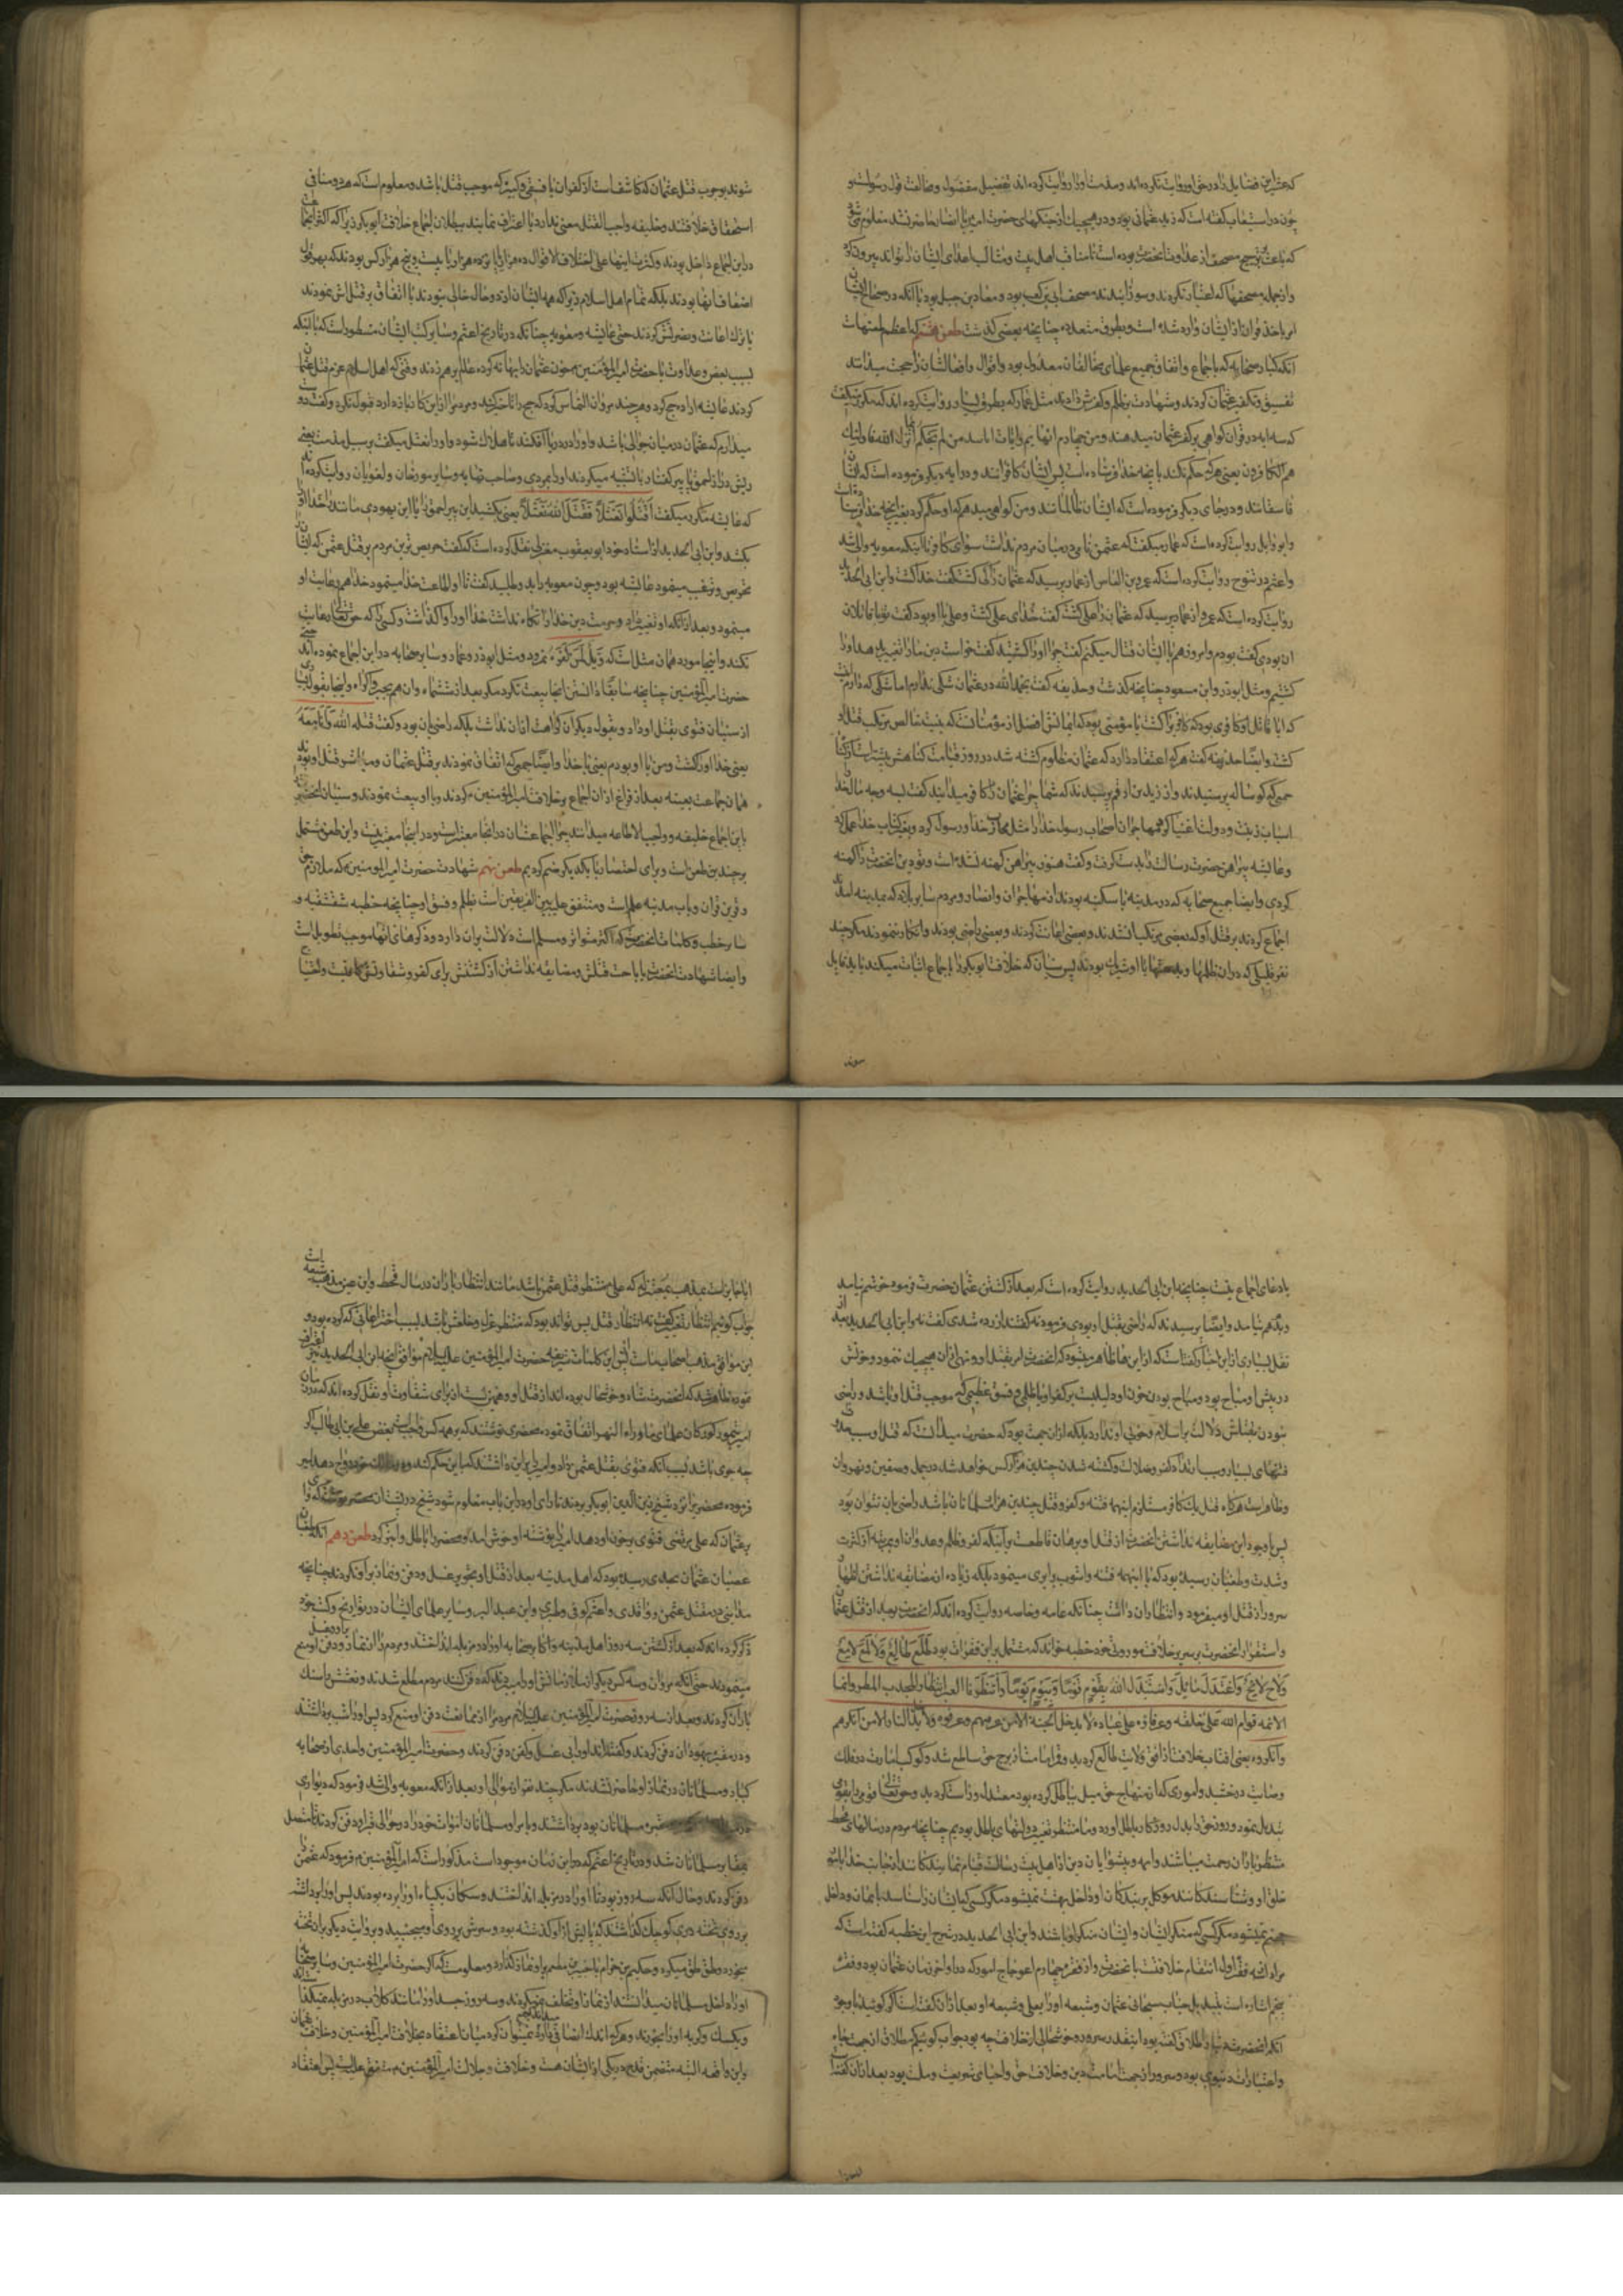 که عشرآن فضایل را در حق او روایت نکرده‌اند و مذمت او را روایت کرده‌اند تفضیل مفضول و مخالفت قول رسولست و
چون در استیعاب گفته است که زید عثمانی بوده و در هیچیک از جنگهای حضرت امیر با انصار حاضر نشد معلوم می شود
که باعث ترجیح مصحف او عداوت آنحضرت بوده است تا مناقب اهل بیت و مثالب اعدای ایشان را تواند بیرون کرد
و از جمله مصحفها که اعتبار نکردند و سوزانیدند مصحف ابی بن کعب بود و معاذ بن جبل بود با آنکه در صحاح ایشان
امر باخذ قرآن از ایشان وارد شده است و بطرق متعدده چنانچه بعضی گذشت طعن هشتم که اعظم طعنهاست
آنکه کبار صحابه که باجماع و اتفاق جمیع علمای مخالفان معدول بود و اقوال و افعال ایشان را حجت میدانند
تفسیق و تکفیر عثمان کردند و شهادت بظلم و کفرش دادند مثل عمار که بطرق بسیار روایت کرده اند که مکرر میگفت
که سه آیه در قرآن گواهی بر کفر عثمان میدهند و من چهارم آنهایم و آیات اینها من لم یحکم بما انزل الله فاولئک
هم الکافرون یعنی هرکه حکم نکند بآنچه خدا فرستاده است پس ایشان کافرانند و در آیه دیگر فرموده است که ایشان
فاسقانند و در جای دیگر فرموده است که ایشان ظالمانند و من گواهی میدهم که او حکم کرد بغیر آنچه خدا فرستاده
و ابو وایل روایت کرده است که عمار میگفت که عثمن نامی در میان مردم نداشت سوای کافر تا آنکه معویه والی شد
و اعثم در فتوح روایت کرده است که عمرو بن العاص از عمار پرسید که عثمان را کی کشت گفت خدا کشت و ابن ابی الحدید
روایت کرده است که عمرو از عمار پرسید که عثمان را علی کشت گفت خدای علی کشت و علی با او بود گفت تو با قاتلان
او بودی گفت بودم و امروز هم با ایشان قتال میکنم گفت چرا او را کشتید گفت خواست دین ما را تغییر بدهد او را
کشتیم و مثل ابوذر و ابن مسعود چنانچه گذشت و حذیفه گفت بحمد الله در عثمان شکی ندارم اما شکی که دارم اینست
که آیا قاتل او کافری بود که کافری را کشت یا مؤمنی بود که ایمانش افضل از مؤمنانست که به نیت خالص مرتکب قتل او
کشت و ایضا حذیفه گفت هرکه اعتقاد دارد که عثمان مظلوم کشته شد در روز قیامت گناهش بیشتر است از گناه
جمعی که گوساله پرستیدند و از زید بن ارقم پرسیدند که شما چرا عثمان را کافر میدانید گفت بسه وجه مال خدا را
اسباب زینت و دولت اغنیا کرد و مهاجران اصحاب رسول خدا را مثل محارب خدا و رسول کرد و بغیر کتاب خدا عمل کرد
و عایشه پیراهن حضرت رسالت را بدست گرفت و گفت هنوز پیراهن کهنه نشده است و تو دین آنحضرت را کهنه
کردی و ایضا جمیع صحابه که در مدینه با سکینه بودند از مهاجران و انصار و مردم سایر بلاد که بمدینه آمدند
اجماع کردند بر قتل او که بعضی مرتکب شدند و بعضی اعانت کردند و بعضی راضی بودند و انکار ننمودند مگر چند
نفر قلیلی که در آن ظلمها و بدعتها با او شریک بودند پس سنیان که خلافت ابوبکر را باجماع اثبات میکنند باید قایل
شوند
شوند بوجوب قتل عثمان که کاشفست از کفر آن یا فسقی و کبیره که موجب قتل باشد و معلوم است که هر دو منافی
استحقاق خلافتند و خلیفه واجب القتل معنی ندارد یا اعتراف نمایند ببطلان اجماع خلافت ابوبکر زیرا که اکثر آنها
در این اجماع داخل بودند و کثرت اینها علی اختلاف الاقوال ده هزار یا پانزده هزار یا بیست و پنج هزار کس بودند که بهر قول
اضعاف آنها بودند بلکه تمام اهل اسلام زیرا که همه ایشان از دو حال خالی نبودند یا اتفاق بر قتلش نمودند
یا ترک اعانت و نصرتش کردند حتی عایشه و معویه چنانکه در تاریخ اعثم و سایر کتب ایشان مسطور است که با آنکه
بسبب بغض و عداوت با حضرت امیر المؤمنین خون عثمان را بهانه کرده عالم بر هم زدند وقتی که اهل اسلام عزم قتل عثمان
کردند عایشه اراده حج کرد و هر چند مروان التماس کرد که حج را تأخیر کند و مردم را از این کار باز دارد قبول نکرد و گفت دوست
میدارم که عثمان در میان جوالی باشد و او را در دریا افکنند تا هلاک شود و او را نعثل میگفت بر سبیل مذمت یعنی
ریش دراز احمق یا پیر کفتار یا تشبیه میکردند او را بمردی و صاحب نهایه و سایر مورخان و لغویان روایت کرده اند
که عایشه مکرر میگفت اقتلوا نعثلا فقتل الله نعثلا یعنی بکشید این پیر احمق را یا این یهودی مانند را خدا او را
بکشد و ابن ابی الحدید از استاد خود ابو یعقوب معتزلی نقل کرده است که گفت حریص ترین مردم بر قتل عثمن که ایشان را
تحریص و ترغیب مینمود عایشه بود و چون معویه را بمدد طلبید گفت تا او اطاعت خدا مینمود خدا هم رعایت او
مینمود و بعد از آنکه او تغییر داد و حرمت دین خدا را نگاه نداشت خدا او را واگذاشت و کسی را که حق تعالی رعایت
نکند و اینجا مورد همان مثل است که ویل لمن کفره نمرود و مثل ابوذر و عمار و سایر صحابه در این اجماع نموده اند حتی
حضرت امیر المؤمنین چنانچه سابقا دانستی اینجا بیعت نکرد مگر بعد از ششماه و آن هم بجبر و اکراه و اینجا بقول بسیاری
از سنیان فتوی بقتل او داد و بقول دیگران کراهت از آن نداشت بلکه راضی بآن بود و گفت قتله الله و انا معه
یعنی خدا او را کشت و من با او بودم یعنی با خدا و ایضا جمعی که اتفاق نمودند بر قتل عثمان و مباشر قتل او بودند
همان جماعت بعینه بعد از فراغ از آن اجماع بر خلافت امیر المؤمنین م کردند و با او بیعت نمودند و سنیان آنحضرت را
باین اجماع خلیفه و واجب الاطاعه میدانند چرا اجماعشان در آنجا معتبر است و در اینجا معتبر نیست و این طعن مشتمل
بر چندین طعن است و برای اختصار با یکدیگر ضم کردیم طعن نهم شهادت حضرت امیر المومنین م که ملازم حق
و قرین قرآن و باب مدینه علم است و متفق علیه بین الفریقین است بظلم و فسق او چنانچه خطبه شقشقیه و
سایر خطب و کلمات آنحضرت که اکثر متواتر و مسلم است دلالت بر آن دارد و ذکر همه آنها موجب تطویل است
و ایضا شهادت آنحضرت باباحت قتلش و مضایقه نداشتن از کشتنش برای کفر و شقاوتش کافیست و احتیاج
بادعای اجماع نیست چنانچه ابن ابی الحدید روایت کرده است که بعد از کشتن عثمان حضرت فرمود خوشم نیامد
و بدم هم نیامد و ایضا پرسیدند که راضی بقتل او بودی فرمود نه گفتند آزرده شدی گفت نه و ابن ابی الحدید بعد از
نقل بسیاری از این اخبار گفته است که از این ها ظاهر میشود که آنحضرت امر بقتل او و نهی از آن هیچیک ننمود و خونش
در پیش او مباح بود و مباح بودن خون او دلیلیست بر کفر او یا ظلمی و فسق عظیمی که موجب قتل او باشد و راضی
نبودن بقتلش دلالت بر اسلام و خوبی او ندارد بلکه از آن جهت بود که حضرت میدانست که قتل او سبب
فتنهای بسیار و سبب ارتداد و کفر و ضلالت و کشته شدن چندین هزار کس خواهد شد در جمل و صفین و نهروان
و ظاهر است هرگاه قتل یک کافر مستلزم اینهمه فتنه و کفر و قتل چندین هزار مسلمانان باشد راضی بآن نتوان بود
پس با وجود این مضایقه نداشتن آنحضرت از قتل او برهان قاطعست بر آنکه کفر و ظلم و عدوان او بمرتبه از کثرت
و شدت و طغیان رسیده بود که با اینهمه فتنه و آشوب برابری مینمود بلکه زیاده از مضایقه نداشتن اظهار
سرور از قتل او میفرمود و انتظار آن داشت چنانکه عامه و خاصه روایت کرده اند که آنحضرت بعد از قتل عثمان
و استقرار آنحضرت بر سریر خلافت موروثی خود خطبه خواند که مشتمل بر این فقرات بود طلع طالع و لمع لامع
و لاح لایح و اعتدل مائل و استبدل الله بقوم قوما و بیوم یوما و انتظرنا الغیر انتظار المجدب المطر و انما
الائمه قوام الله علی خلقه و عرفاؤه علی عباده لا یدخل الجنة الا من عرفهم و عرفوه و لا یدخل النار الا من انکرهم
و انکروه یعنی آفتاب خلافت از افق ولایت طالع گردید و قمر امامت از برج حق ساطع شد و کوکب امارت در فلک
وصایت درخشید و اموری که از منهاج حق میل بباطل کرده بود معتدل و راست گردید و حق تعالی قومی را بقومی
تبدیل نمود و روز حق را بدل روزگار باطل آورد و ما منتظر تغییر دولتهای باطل بودیم چنانچه مردم در سالهای قحط
منتظر باران رحمت میباشند و ائمه و پیشوایان دین از اهل بیت رسالت قیام نمایندگانند از جانب خدا بامور
خلق او و شناسندگانند و موکل بر بندگان او داخل بهشت نمیشود مگر کسی که ایشان را شناسد بایمان و داخل
جهنم نمیشود مگر کسی که منکر ایشان و ایشان منکر او باشند و ابن ابی الحدید در شرح این خطبه گفته است که
مراد از سه فقره اول انتقام خلافتست بآنحضرت و از فقره چهارم اعوجاج امور که در اواخر زمان عثمان بود و فقره
پنجم اشارتست بتبدیل جناب سبحانی عثمان و شیعه او را بعلی و شیعه او بعد از آن گفته است اگر گویند با وجود
آنکه آنحضرت دنیا را طلاق گفته بود اینقدر سرور و خوشحالی از خلافت چه بود جواب گوییم که طلاق از جهت جاه
و اعتبارات دنیوی بود و سرور از جهت امامت دین و خلافت حق و احیای شریعت و ملت بود بعد از آن گفته است
آیا جایز است بمذهب معتزله که علی منتظر قتل عثمن باشد مانند انتظار باران در سال قحط و این عین مذهب شیعه است
جواب گوییم انتظار تغییر گفت نه انتظار قتل پس تواند بود که منتظر عزل و خلعش باشد بسبب اختراعاتی که کرده بود و
این موافق مذهب اصحاب ماست پس این کلمات شریفه حضرت امیر المؤمنین علیه السلام موافق آنچه ابن ابی الحدید نیز اعتراف
نموده ظاهر شد که آنحضرت شاد و خوشحال بوده اند از قتل او و همین بس است برای شقاوت او و نقل کرده اند که در زمان
امیر تیمور گورکان علمای ماوراء النهر اتفاق نموده محضری نوشتند که بر همه کس واجبست بغض علی بن ابی طالب اگر
چه جوی باشد بسبب آنکه فتوی بقتل عثمن داد و امیر را بر این داشتند که باین حکم کند و در ممالک خود رواج دهد امیر
فرموده محضر را نزد شیخ زین الدین ابوبکر بردند تا رای او در این باب معلوم شود شیخ در پشت آن محضر نوشت که وای
بر عثمان که علی مرتضی فتوی بر خون او دهد امیر را نوشته او خوش آمد و محضر را باطل و ابتر کرد طعن دهم آنکه طغیان
عصیان عثمان بحدی رسیده بود که اهل مدینه بعد از قتل او تجویز غسل و دفن و نماز بر او نکردند چنانچه
مداینی در مقتل عثمن و واقدی و اعثم کوفی و طبری و ابن عبد البر و سایر علمای ایشان در تواریخ و کتب خود
ذکر کرده اند که بعد از کشتن سه روز اهل مدینه و اکابر صحابه او را در مزبله انداختند و مردم را از نماز و دفن او منع
مینمودند حتی آنکه مروان و سه کس دیگر از ملازمانش او را میبردند که دفن کنند مردم مطلع شدند و نعشش را سنگ
باران کردند و بعد از سه روز حضرت امیر المؤمنین علیه السلام مردم را از ممانعت دفن او منع کرد پس او را شب برداشتند
و در مقبره یهودان دفن کردند و گفته اند او را بی غسل و کفن دفن کردند و حضرت امیر المؤمنین و احدی از صحابه
کبار و مسلمانان در نماز او حاضر نشدند مگر چند نفر از موالی او و بعد از آنکه معویه والی شد فرمود که دیواری
مقبره مسلمانان بود برداشتند و بامر او مسلمانان اموات خود را در حوالی قبر او دفن کردند تا متصل
بمقابر مسلمانان شد و در تاریخ اعثم که در این زمان موجود است مذکور است که امیر المؤمنین م فرمود که عثمن را
دفن کردند و حال آنکه سه روز بود تا او را در مزبله انداختند و سگان یک پای او را برده بودند پس او را برداشتند
بر روی تخته دری کوچک گذاشتند که پایش از او گذشته بود و سرش بر روی او میجنبید و بروایت دیگر بر آن تخته
میخورد و طق طق میکرد و حکیم بن حزام یا جبیر بن مطعم بر او نماز گذارد و معلومست که اگر حضرت امیر المؤمنین و سایر صحابه
او را داخل مسلمانان میدانستند از نماز او تخلف نمیکردند و سه روز جسد او را مانند کلاب در مزبله نمیگذاشتند
و یک سگ و گربه او را بخورند و هرکه اندک انصافی دارد میداند که جمع نمیتوان کرد میان اعتقاد بخلافت امیر المؤمنین و خلافت عثمان
و این واقعه البته متضمن قدح در یکی از ایشان هست و خلافت و جلالت امیر المؤمنین م متفق علیه است پس اعتقاد